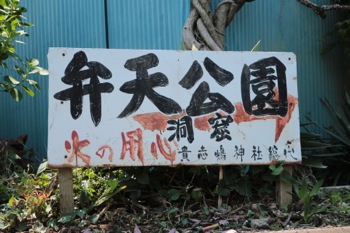 弁天公園
洞窟
火の用心
貴志嶋神社総心